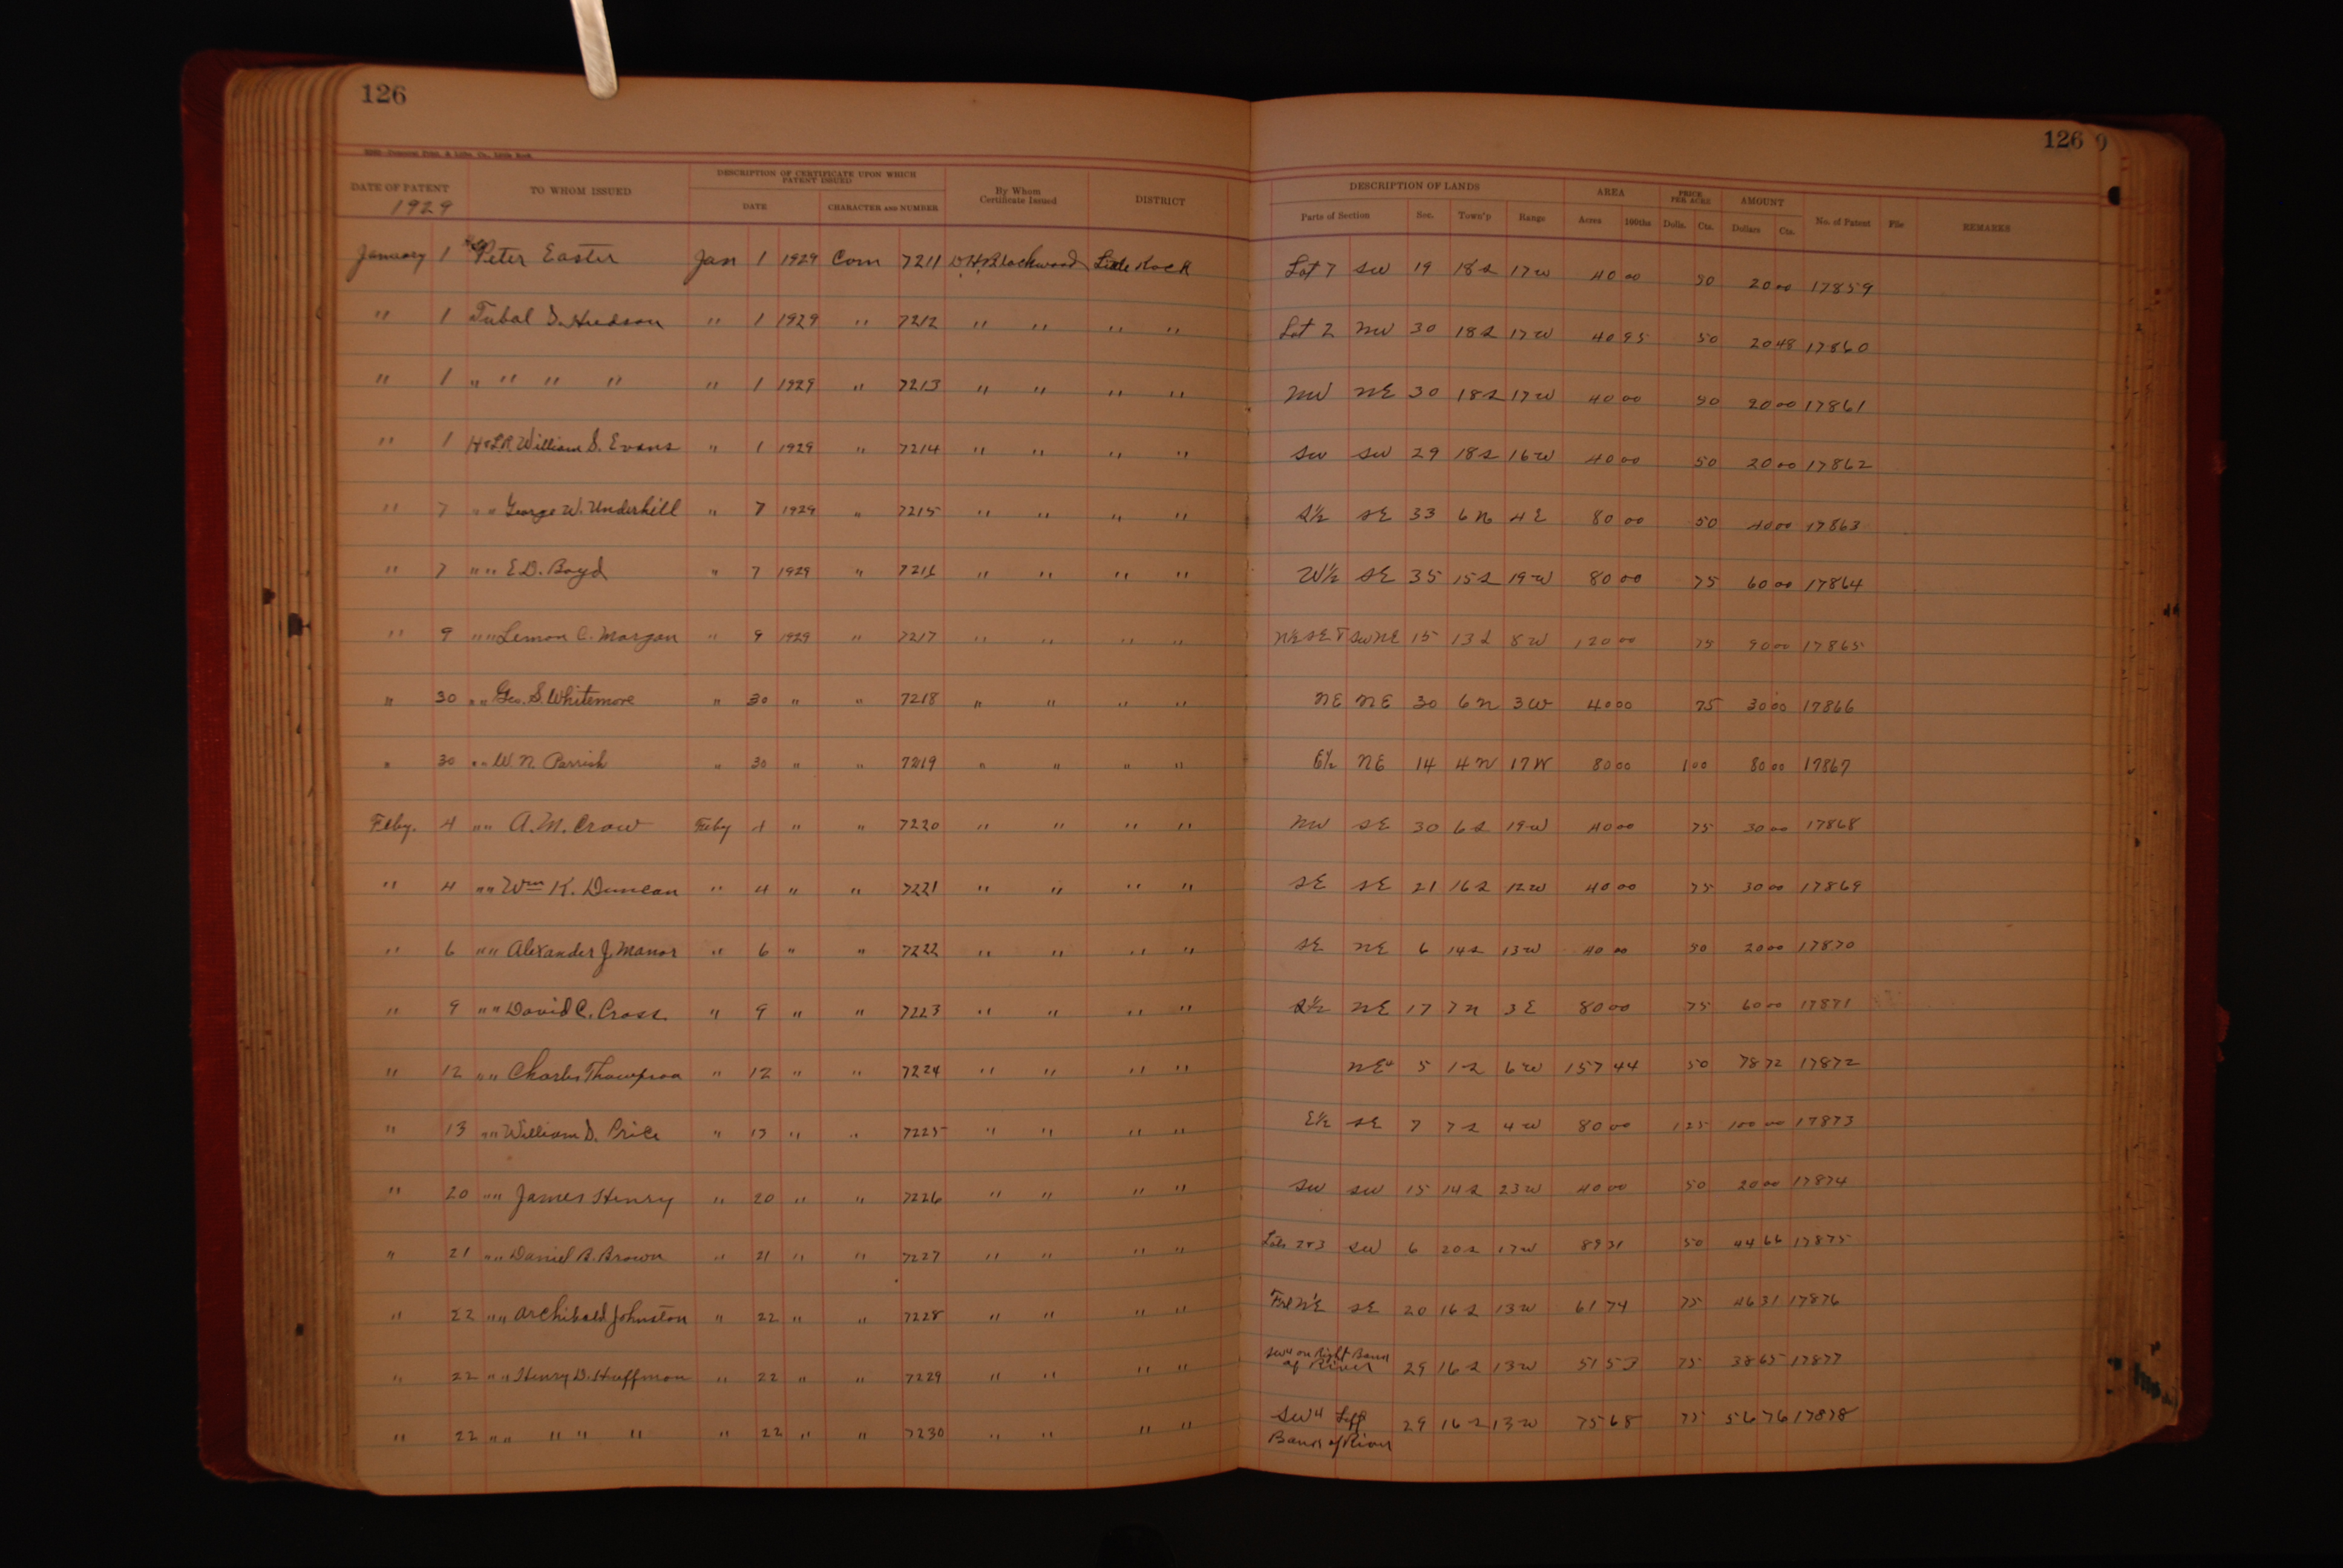 126
126
DATE OF PATENT 1929 TO WHOM ISSUED DESCRIPTION OF CERTIFICATE UPON WHICH PATENT ISSUED DATE CHARACTER AND NUMBER By Whom Certificate Issued DISTRICT DESCRIPTION OF LANDS Parts of Section Sec. Town'p Range AREA Acres 100ths PRICE PER ACRE Dolls. Cts. AMOUNT Dollars Cts. No. of Patent File REMARKS
January 1 Peter Easter Jan 1 1929 Com 7211 D.H. Blackwood Little Rock Lot 7 SW 19 18S 17W 40 00 50 20 00 17859
" 1 Tubal S. Hudson " 1 1929 " 7212 " " " " Lot 2 NW 30 18S 17W 40 95 50 20 48 17860
" 1 " " " " " 1 1929 " 7213 " " " " NW NE 30 18S 17W 40 00 50 20 00 17861
" 1 H&LR William S. Evans " 1 1929 " 7214 " " " " SW SW 29 18S 16W 40 00 50 20 00 17862
" 7 " " George W. Underhill " 7 1929 " 7215 " " " " S½ SE 33 6N 4E 80 00 50 40 00 17863
" 7 " " E.D. Boyd " 7 1929 " 7216 " " " " W½ SE 35 15S 19W 80 00 75 60 00 17864
" 9 " " Lemon C. Morgan " 9 1929 " 7217 " " " " N½ SE & SW NE 15 13S 8W 120 00 75 90 00 17865
" 30 " " Geo. S. Whitemore " 30 " " 7218 " " " " NE NE 30 6N 3W 40 00 75 30 00 17866
" 30 " " W. N. Parrish " 30 " " 7219 " " " " E½ NE 14 4N 17W 80 00 1 00 80 00 17867
Feby. 4 " " A. M. Crow Feby 4 " " 7220 " " " " NW SE 30 6S 19W 40 00 75 30 00 17868
" 4 " " Wm K. Duncan " 4 " " 7221 " " " " SE SE 21 16S 12W 40 00 75 30 00 17869
" 6 " " Alexander J. Manor " 6 " " 7222 " " " " SE NE 6 14S 13W 40 00 50 20 00 17870
" 9 " " David C. Cross " 9 " " 7223 " " " " S½ NE 17 7N 3E 80 00 75 60 00 17871
" 12 " " Charles Thompson " 12 " " 7224 " " " " NE4 5 1S 6W 157 44 50 78 72 17872
" 13 " " William D. Price " 13 " " 7225 " " " " E½ SE 7 7S 4W 80 00 1 25 100 00 17873
" 20 " " James Henry " 20 " " 7226 " " " " SW SW 15 14S 23W 40 00 50 20 00 17874
" 21 " " Daniel B. Brown " 21 " " 7227 " " " " Lots 2&3 SW 6 20S 17W 89 31 50 44 66 17875
" 22 " " Archibald Johnston " 22 " " 7228 " " " " Frl N½ SE 20 16S 13W 61 74 75 46 31 17876
" 22 " " Henry D. Huffman " 22 " " 7229 " " " " SW4 on Right Bank of River 29 16S 13W 51 53 75 38 65 17877
" 22 " " " " " " 22 " " 7230 " " " " SW4 Left Bank of River 29 16S 13W 75 68 75 56 76 17878